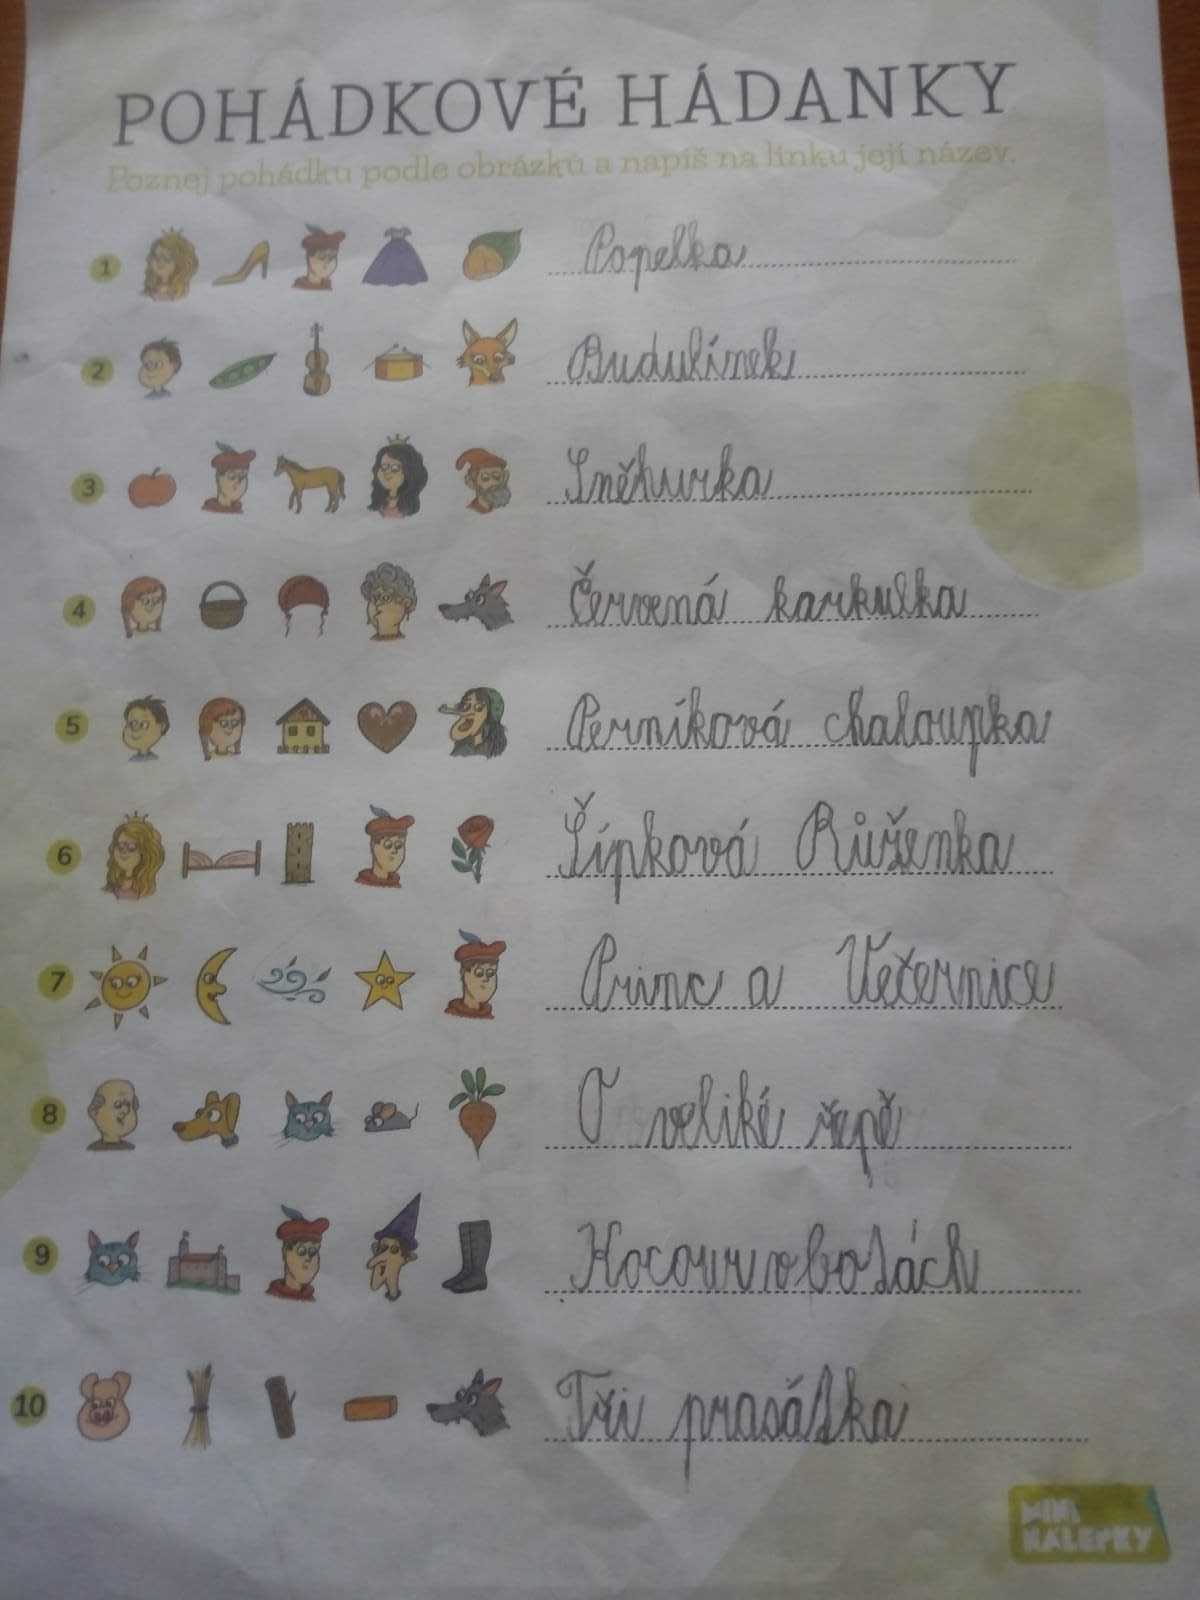 POHÁDKOVÉ HÁDANKY
Poznej pohádku podle obrázků a napiš na linku její název.
1 Popelka
2 Budulínek
3 Sněhurka
4 Červená karkulka
5 Perníková chaloupka
6 Šípková Růženka
7 Princ a Večernice
8 O veliké řepě
9 Kocour v botách
10 Tři prasátka
MINI
NÁLEPKY